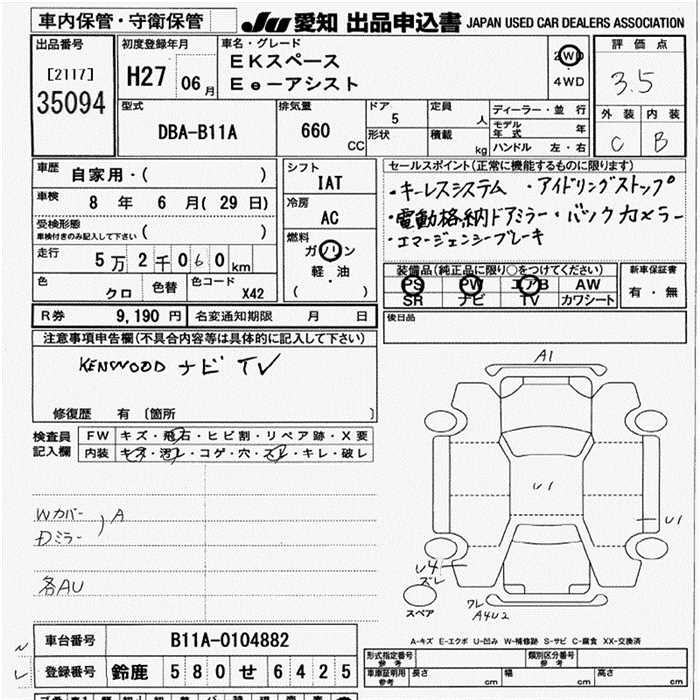 車内保管・守衛保管
JU 愛知 出品申込書 JAPAN USED CAR DEALERS ASSOCIATION
出品番号
[2117]
35094
初度登録年月
H27 06月
車名・グレード
EKスペース
Ee-アシスト
2WD
4WD
評価点
3.5
外装 内装
C B
型式
DBA-B11A
排気量
660 CC
ドア 5
形状
定員 人
積載 kg
ディーラー・並行
モデル年式 年
ハンドル 左・右
車歴 自家用・( )
車検 8 年 6 月( 29 日)
受検形態
車検付きのみ記入して下さい ( )
走行 5万2千060km
色 クロ 色替 色コード X42
シフト
IAT
冷房
AC
燃料
ガソリン
軽・油
( )
セールスポイント(正常に機能するものに限ります)
・キーレスシステム ・アイドリングストップ
・電動格納ドアミラー・バックカメラー
・エマージェンシーブレーキ
装備品(純正品に限り○をつけてください)
PS PW エアB AW
SR ナビ TV カワシート
新車保証書
有・無
R券 9,190 円 名変通知期限 月 日
後日品
注意事項申告欄(不具合内容等は具体的に記入して下さい)
KENWOOD ナビ TV
修復歴 有 〔箇所 〕
検査員記入欄
FW キズ・飛石・ヒビ割・リペア跡・X要
内装 キズ・汚レ・コゲ・穴・スレ・キレ・破レ
Wカバー
Dミラー ) A
各AU
A1
U1
U1
U4
ズレ
スペア
ワレ
A4U2
A-キズ E-エクボ U-凹み W-補修跡 S-サビ C-腐食 XX-交換済
車台番号 B11A-0104882
登録番号 鈴鹿 580 せ 6425
型式指定番号 参考
類別区分番号 参考
車庫証明用 参考 長さ cm 幅 cm 高さ cm